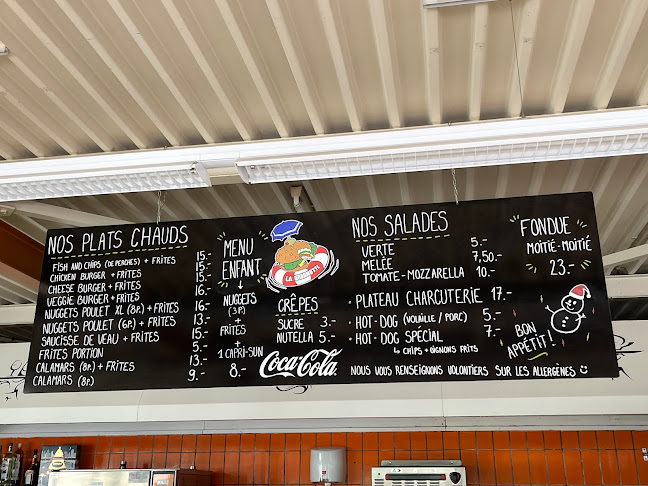 NOS PLATS CHAUDS
FISH AND CHIPS (DE PERCHES) + FRITES 15.-
CHICKEN BURGER + FRITES 15.-
CHEESE BURGER + FRITES 16.-
VEGGIE BURGER + FRITES
NUGGETS POULET XL (8P.) + FRITES 16.-
NUGGETS POULET (6P.) + FRITES 13.-
SAUCISSE DE VEAU + FRITES 15.-
FRITES PORTION
CALAMARS (8P.) + FRITES 13.-
CALAMARS (8P.) 9.-
MENU
ENFANT
NUGGETS
(3P.)
+
FRITES
+
1 CAPRI-SUN
8.-
LA
CRÊPES
SUCRE 3.-
NUTELLA 5.-
Coca-Cola
NOS SALADES
VERTE 5.-
MELÉE 7,50.-
TOMATE-MOZZARELLA 10.-
• PLATEAU CHARCUTERIE 17.-
• HOT-DOG (VOLAILLE / PORC) 5.-
• HOT-DOG SPÉCIAL 7.-
↳ CHIPS + OIGNONS FRITS
FONDUE
MOITIÉ-MOITIÉ
23.-
BON
APPÉTIT!
NOUS VOUS RENSEIGNONS VOLONTIERS SUR LES ALLERGÈNES ☺